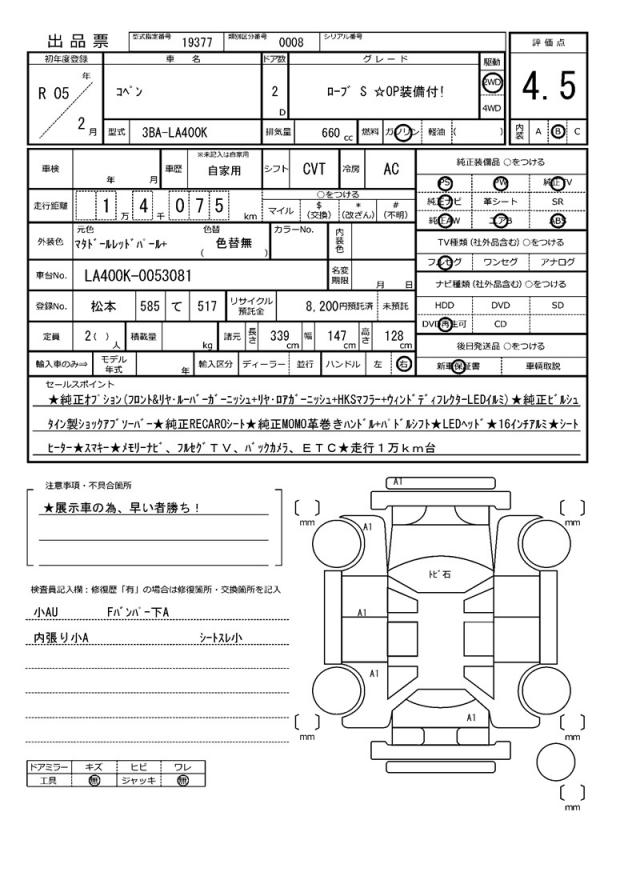 出品票 型式指定番号 19377 類別区分番号 0008 シリアル番号
評価点
4.5
内装 A B C
初年度登録 車名 ドア数 グレード 駆動
R 05 年 2 月
コペン 2 D ローブ S ☆OP装備付! 2WD 4WD
型式 3BA-LA400K 排気量 660 cc 燃料 ガソリン 軽油 ( )
車検 年 月 車歴 ※未記入は自家用 自家用 シフト CVT 冷房 AC
走行距離 1 万 4 千 0 7 5 km
○をつける
マイル $ (交換) * (改ざん) # (不明)
外装色 元色 マタドールレッドパール+ 色替 ( 色替無 ) カラーNo. 内装色
車台No. LA400K-0053081 名変期限 月 日
登録No. 松本 585 て 517 リサイクル預託金 8,200円預託済 未預託
定員 2( ) 人 積載量 kg 諸元 長さ 339 cm 幅 147 cm 高さ 128 cm
輸入車のみ⇒ モデル年式 年 輸入区分 ディーラー 並行 ハンドル 左 右
純正装備品 ○をつける
PS PW 純正TV
純正ナビ 革シート SR
純正AW エアB ABS
TV種類(社外品含む) ○をつける
フルセグ ワンセグ アナログ
ナビ種類(社外品含む) ○をつける
HDD DVD SD
DVD再生可 CD
後日発送品 ○をつける
新車保証書 車輌取説
セールスポイント
★純正オプション(フロント&リヤ・ルーバーガーニッシュ+リヤ・ロアガーニッシュ+HKSマフラー+ウィンドディフレクターLEDイルミ)★純正ビルシュ
タイン製ショックアブソーバー★純正RECAROシート★純正MOMO革巻きハンドル+パドルシフト★LEDヘッド★16インチアルミ★シート
ヒーター★スマキー★メモリーナビ、フルセグTV、バックカメラ、ETC★走行1万km台
注意事項・不具合箇所
★展示車の為、早い者勝ち!
検査員記入欄:修復歴「有」の場合は修復箇所・交換箇所を記入
小AU Fバンパー下A
内張り小A シートスレ小
ドアミラー キズ ヒビ ワレ
工具 無 ジャッキ 無
A1
mm
A1
A1
mm
トビ石
A1
A1
A1
mm
mm
mm